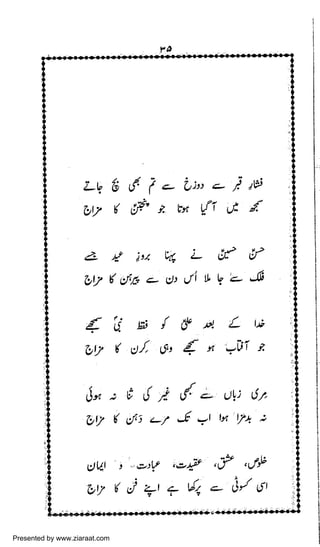 ۳۵
فشارِ قبر سے دوزخ سے تم بھی بچ جاتے
سمجھ میں آ گیا ہوتا جو پنجتنؑ کا مزاج
حسنؑ حسینؑ نے پہنا بروزِ عید جسے
فلک سے جا ملا اُس دن سے پیرہن کا مزاج
خدا کے بعد علیؑ کو فقط نبیؐ سمجھے
جو آفتاب ہو سمجھے وہی کرن کا مزاج
مری زباں سے کبھی غیر کی ثنا نہ ہوئی
نہ بدمزا ہوا اب تک مرے دہن کا مزاج
خلوص، عشق، عقیدت، عبادت و ایمان
اسی کسوٹی سے پرکھا ہے اپنے فن کا مزاج
Presented by www.ziaraat.com